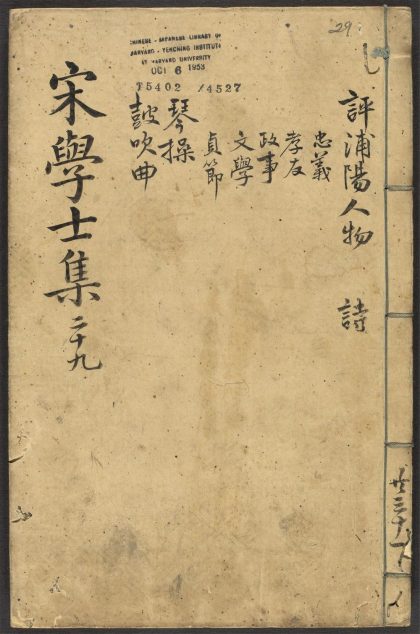 29
CHINESE - JAPANESE LIBRARY OF
HARVARD - YENCHING INSTITUTE
AT HARVARD UNIVERSITY
OCT 6 1953
T5402 /4527
評浦陽人物 詩
忠義
孝友
政事
文學
貞節
琴操
皷吹曲
宋學士集 二十九